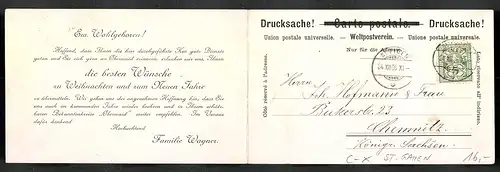 Ew. Wohlgeboren!
Hoffend, dass Ihnen die hier durchgeführte Kur gute Dienste
getan und Sie sich gern an Obermaid erinnern, erlauben wir uns, Ihnen
die besten Wünsche
zu Weihnachten und zum Neuen Jahre
zu übermitteln. Wir geben uns der angenehmen Hoffnung hin, dass Sie uns
auch im kommenden Jahre wieder beehren und in Ihrem
Bekanntenkreise „Obermaid“ weiter empfehlen. Im Voraus
dafür dankend
Hochachtend
Familie Wagner.
Drucksache! Carte postale. Drucksache!
Union postale universelle. Weltpostverein. Unione postale universale.
Nur für die
Côté réservé à l'adresse.
Lato riservato all'indirizzo.
Herrn
Th. Hofmann & Frau
23
Chemnitz
Königr. Sachsen.
C-X ST. GALLEN 16,-